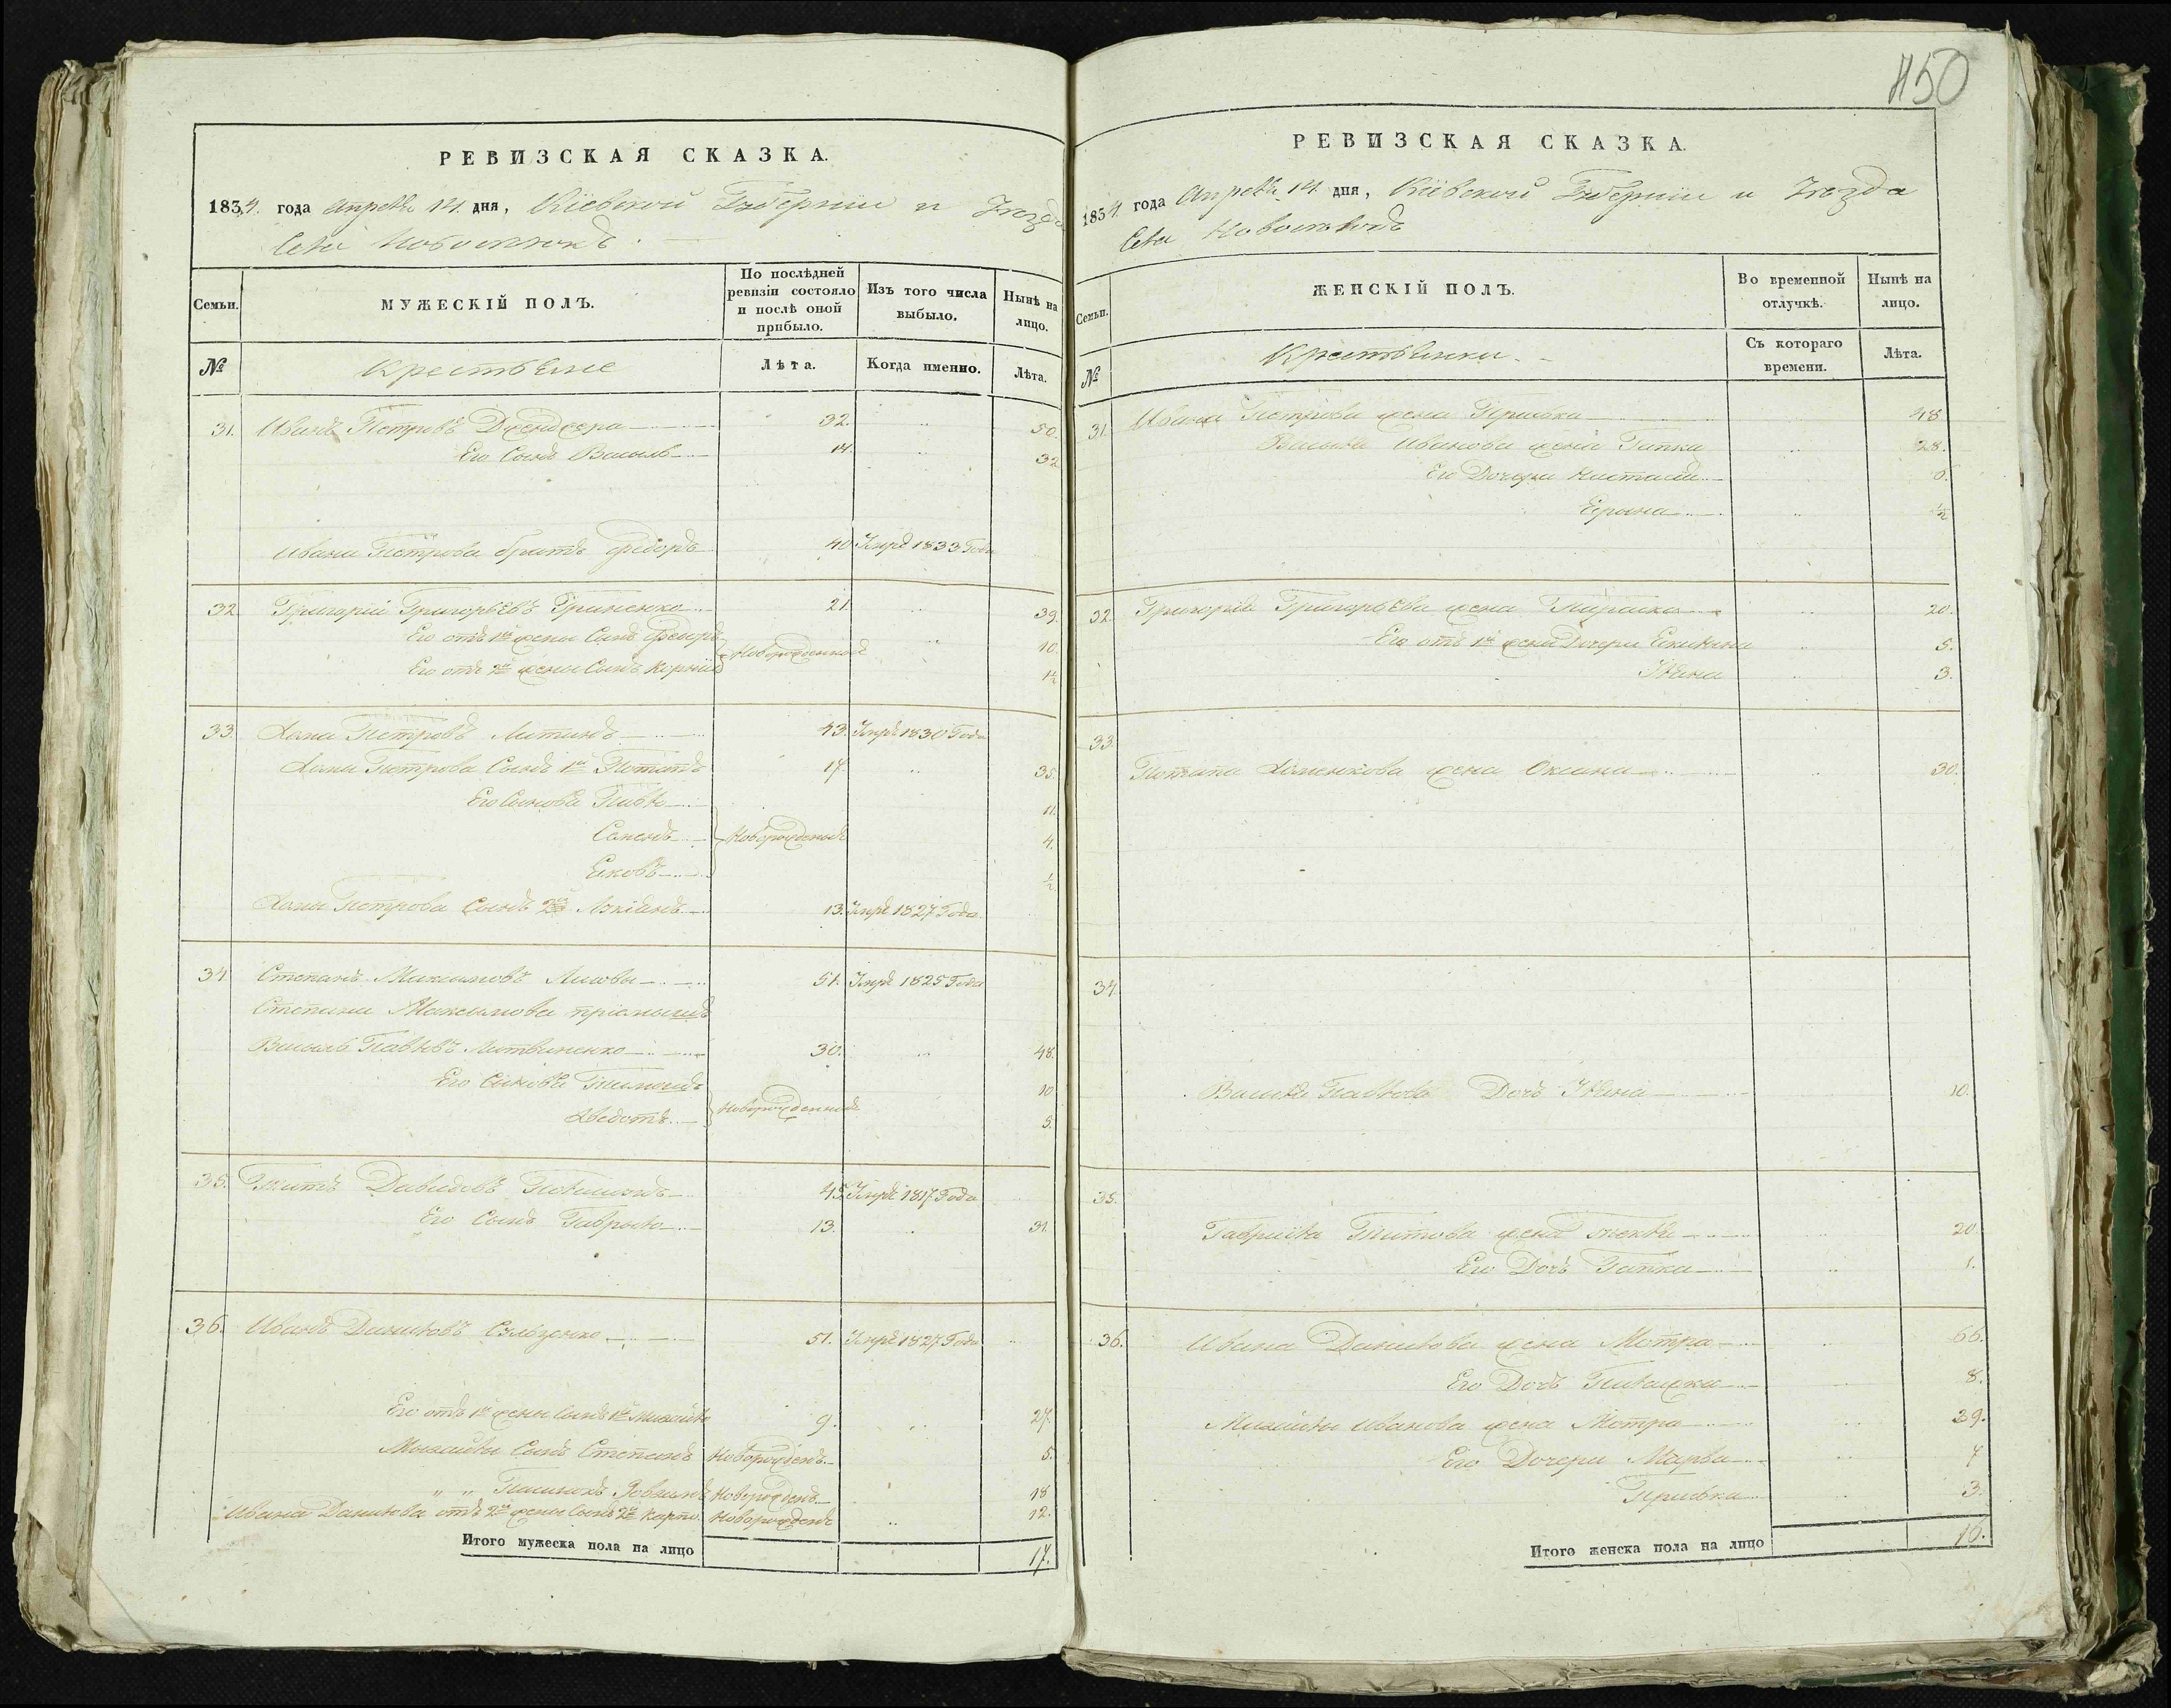 РЕВИЗСКАЯ СКАЗКА.
1834. года Апреля 14. дня, Кіевской Губерніи и Уезда
Села Новоселокъ
Семьи.
МУЖЕСКІЙ ПОЛЪ.
По послѣдней ревизіи состояло и послѣ оной прибыло.
Изъ того числа выбыло.
Нынѣ на лицо.
№
Крестьяне
Лѣта.
Когда именно.
Лѣта.
31. Иванъ Петровъ 32. 50.
Его Сынъ Василь 14. 32
Ивана Петрова братъ Федоръ 40 Умре 1833 Года
32 Григорій Григорьевъ Гриненко 21. 39.
Его отъ 1й жены Сынъ Федоръ 10.
Новорожденные
Его отъ 2й жены Сынъ Корній 1½
33. Хома Петровъ 43. Умре 1830 Года
Хомы Петрова Сынъ 1й Потапъ 17 35.
Его Сыновья Павло 11.
Новорожденые 4.
Яковъ ½
Хомы Петрова Сынъ 2й 13. Умре 1827 Года
34 Степанъ Максимовъ 51. Умре 1825 Года
Степана Максимова пріемышъ
Василь Павловъ Литвиненко 30. 48.
Его Сыновья Тимошъ 10
Новорожденные
Федотъ 5.
35. Титъ Давидовъ 45 Умре 1817 Года
Его Сынъ Гаврыло 13. 31.
36. Иванъ Даниловъ 51. Умре 1827 Года
Его отъ 1й жены Сынъ 1й Михайло 9. 27.
Михайлы Сынъ Степанъ Новорожденъ 5.
" " Новорожденъ 18
Ивана Данилова отъ 2й жены Сынъ 2й Карпо Новорожденъ 12.
Итого мужеска пола на лицо 17.
150
РЕВИЗСКАЯ СКАЗКА.
1834. года Апреля 14. дня, Кіевской Губерніи и Уезда
Села Новоселокъ
Семьи.
ЖЕНСКІЙ ПОЛЪ.
Во временной отлучкѣ.
Нынѣ на лицо.
№
Крестьянки
Съ котораго времени.
Лѣта.
31. Ивана Петрова жена Приська 48.
Василя Иванова жена Гапка 28.
Его Дочери Настасія 6.
Ерына ½
32. Григорія Григорьева жена Параска 20.
Его отъ 1й жены Дочери 5.
Уляна 3.
33.
Потапа Хоменкова жена Оксана 30.
34.
Василя Павлова Дочь Уляна 10.
35.
Гаврила Титова жена Текля 20.
Его Дочь Гапка 1.
36. Ивана Данилова жена Мотра 66.
Его Дочь Палажка 8.
Михайлы Иванова жена Мотра 29.
Его Дочери Марва 7
Приська 3.
Итого женска пола на лицо 16.